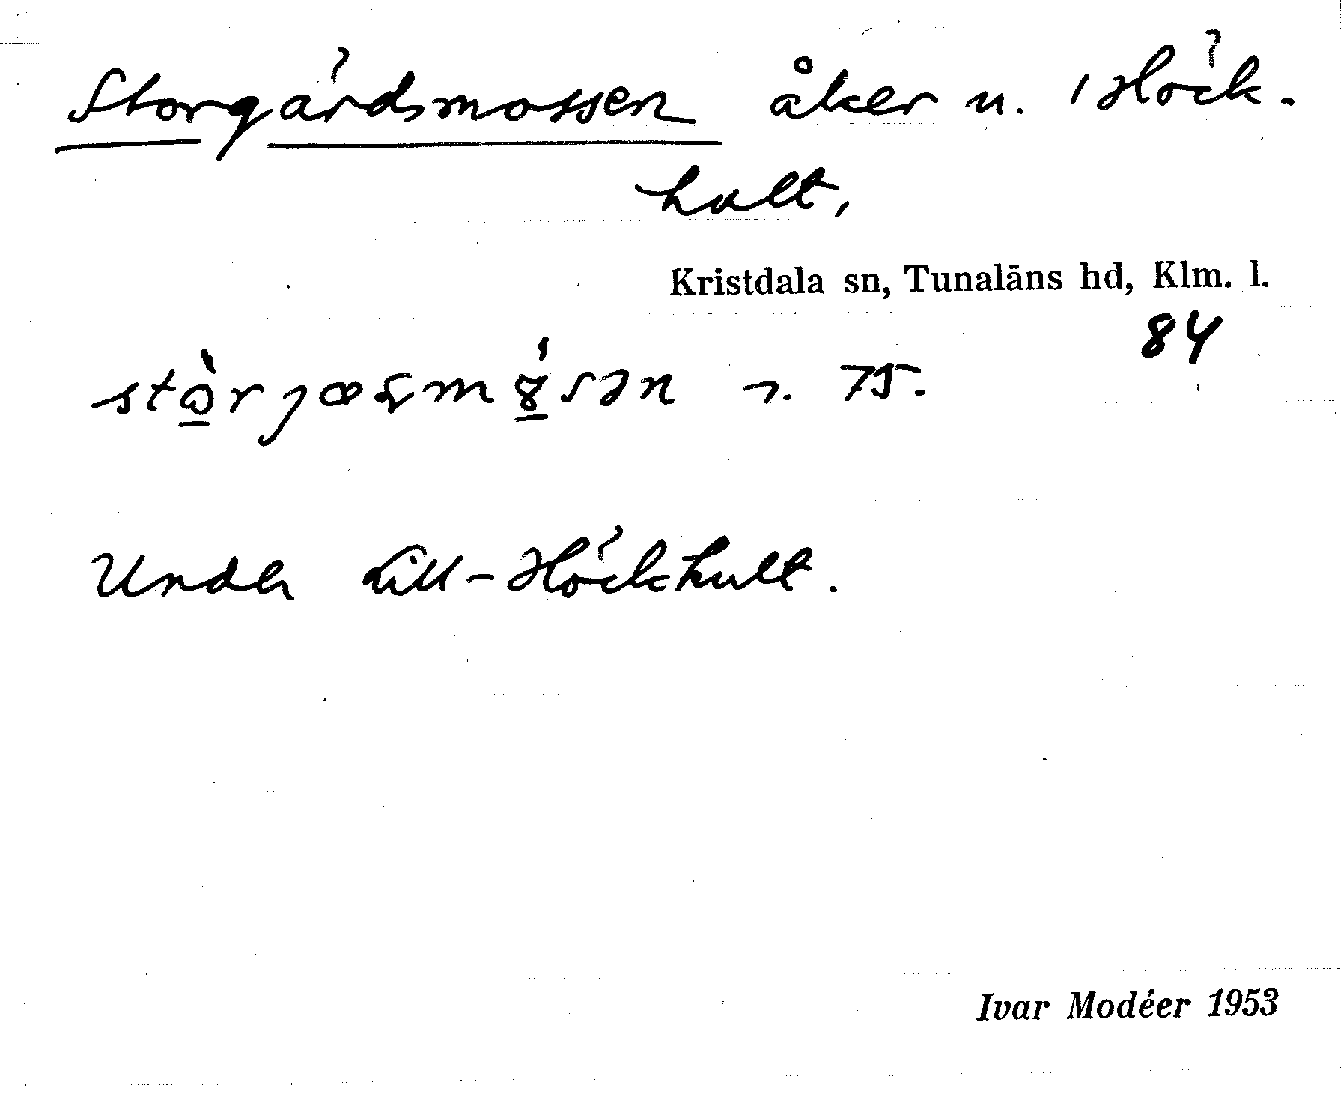 Storgårdsmossen åker u. Höck-
hult,
Kristdala sn, Tunaläns hd, Klm. l.
84
75.
Under Lill-Höckhult.
Ivar Modéer 1953